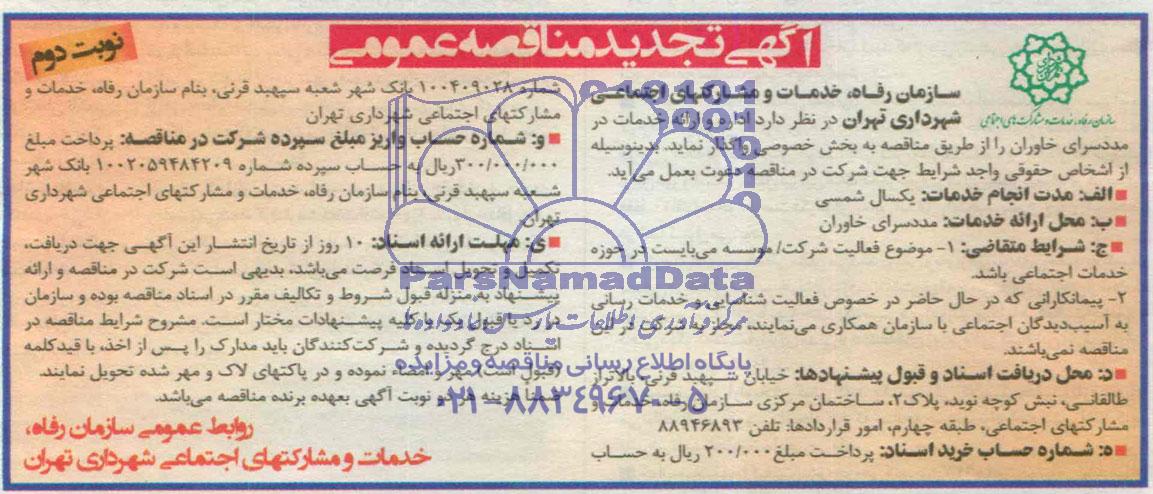 آگهی تجدید مناقصه عمومی
نوبت دوم
سازمان رفاه، خدمات و مشارکتهای اجتماعی
سازمان رفاه، خدمات و مشارکتهای اجتماعی
شهرداری تهران در نظر دارد اداره و ارائه خدمات در
مددسرای خاوران را از طریق مناقصه به بخش خصوصی واگذار نماید. بدینوسیله
از اشخاص حقوقی واجد شرایط جهت شرکت در مناقصه دعوت بعمل می‌آید.
■ الف: مدت انجام خدمات: یکسال شمسی
■ ب: محل ارائه خدمات: مددسرای خاوران
■ ج: شرایط متقاضی: ۱- موضوع فعالیت شرکت/موسسه می‌بایست در حوزه
خدمات اجتماعی باشد.
۲- پیمانکارانی که در حال حاضر در خصوص فعالیت شناسایی و خدمات رسانی
به آسیب‌دیدگان اجتماعی با سازمان همکاری می‌نمایند، مجاز به شرکت در این
مناقصه نمی‌باشند.
■ د: محل دریافت اسناد و قبول پیشنهادها: خیابان سپهبد قرنی، بالاتر از
طالقانی، نبش کوچه نوید، پلاک۲، ساختمان مرکزی سازمان رفاه، خدمات و
مشارکتهای اجتماعی، طبقه چهارم، امور قراردادها: تلفن ۸۸۹۴۶۸۹۳
■ ه: شماره حساب خرید اسناد: پرداخت مبلغ ۲۰۰/۰۰۰ ریال به حساب
شماره ۱۰۰۴۰۹۰۲۸ بانک شهر شعبه سپهبد قرنی، بنام سازمان رفاه، خدمات و
مشارکتهای اجتماعی شهرداری تهران
■ و: شماره حساب واریز مبلغ سپرده شرکت در مناقصه: پرداخت مبلغ
۳۰۰/۰۰۰/۰۰۰ریال به حساب سپرده شماره ۱۰۰۲۰۵۹۴۸۴۲۰۹ بانک شهر
شعبه سپهبد قرنی، بنام سازمان رفاه، خدمات و مشارکتهای اجتماعی شهرداری
تهران.
■ ی: مهلت ارائه اسناد: ۱۰ روز از تاریخ انتشار این آگهی جهت دریافت،
تکمیل و تحویل اسناد فرصت می‌باشد، بدیهی است شرکت در مناقصه و ارائه
پیشنهاد به منزله قبول شروط و تکالیف مقرر در اسناد مناقصه بوده و سازمان
در رد یا قبول یک یا کلیه پیشنهادات مختار است. مشروح شرایط مناقصه در
اسناد درج گردیده و شرکت‌کنندگان باید مدارک را پس از اخذ، با قیدکلمه
(قبول است) مهر و امضاء نموده و در پاکتهای لاک و مهر شده تحویل نمایند.
ضمنا هزینه هر دو نوبت آگهی بعهده برنده مناقصه می‌باشد.
روابط عمومی سازمان رفاه،
خدمات و مشارکتهای اجتماعی شهرداری تهران
ParsNamadData
پایگاه اطلاع رسانی مناقصه و مزایده
۰۲۱-۸۸۳۴۹۶۷۰-۵